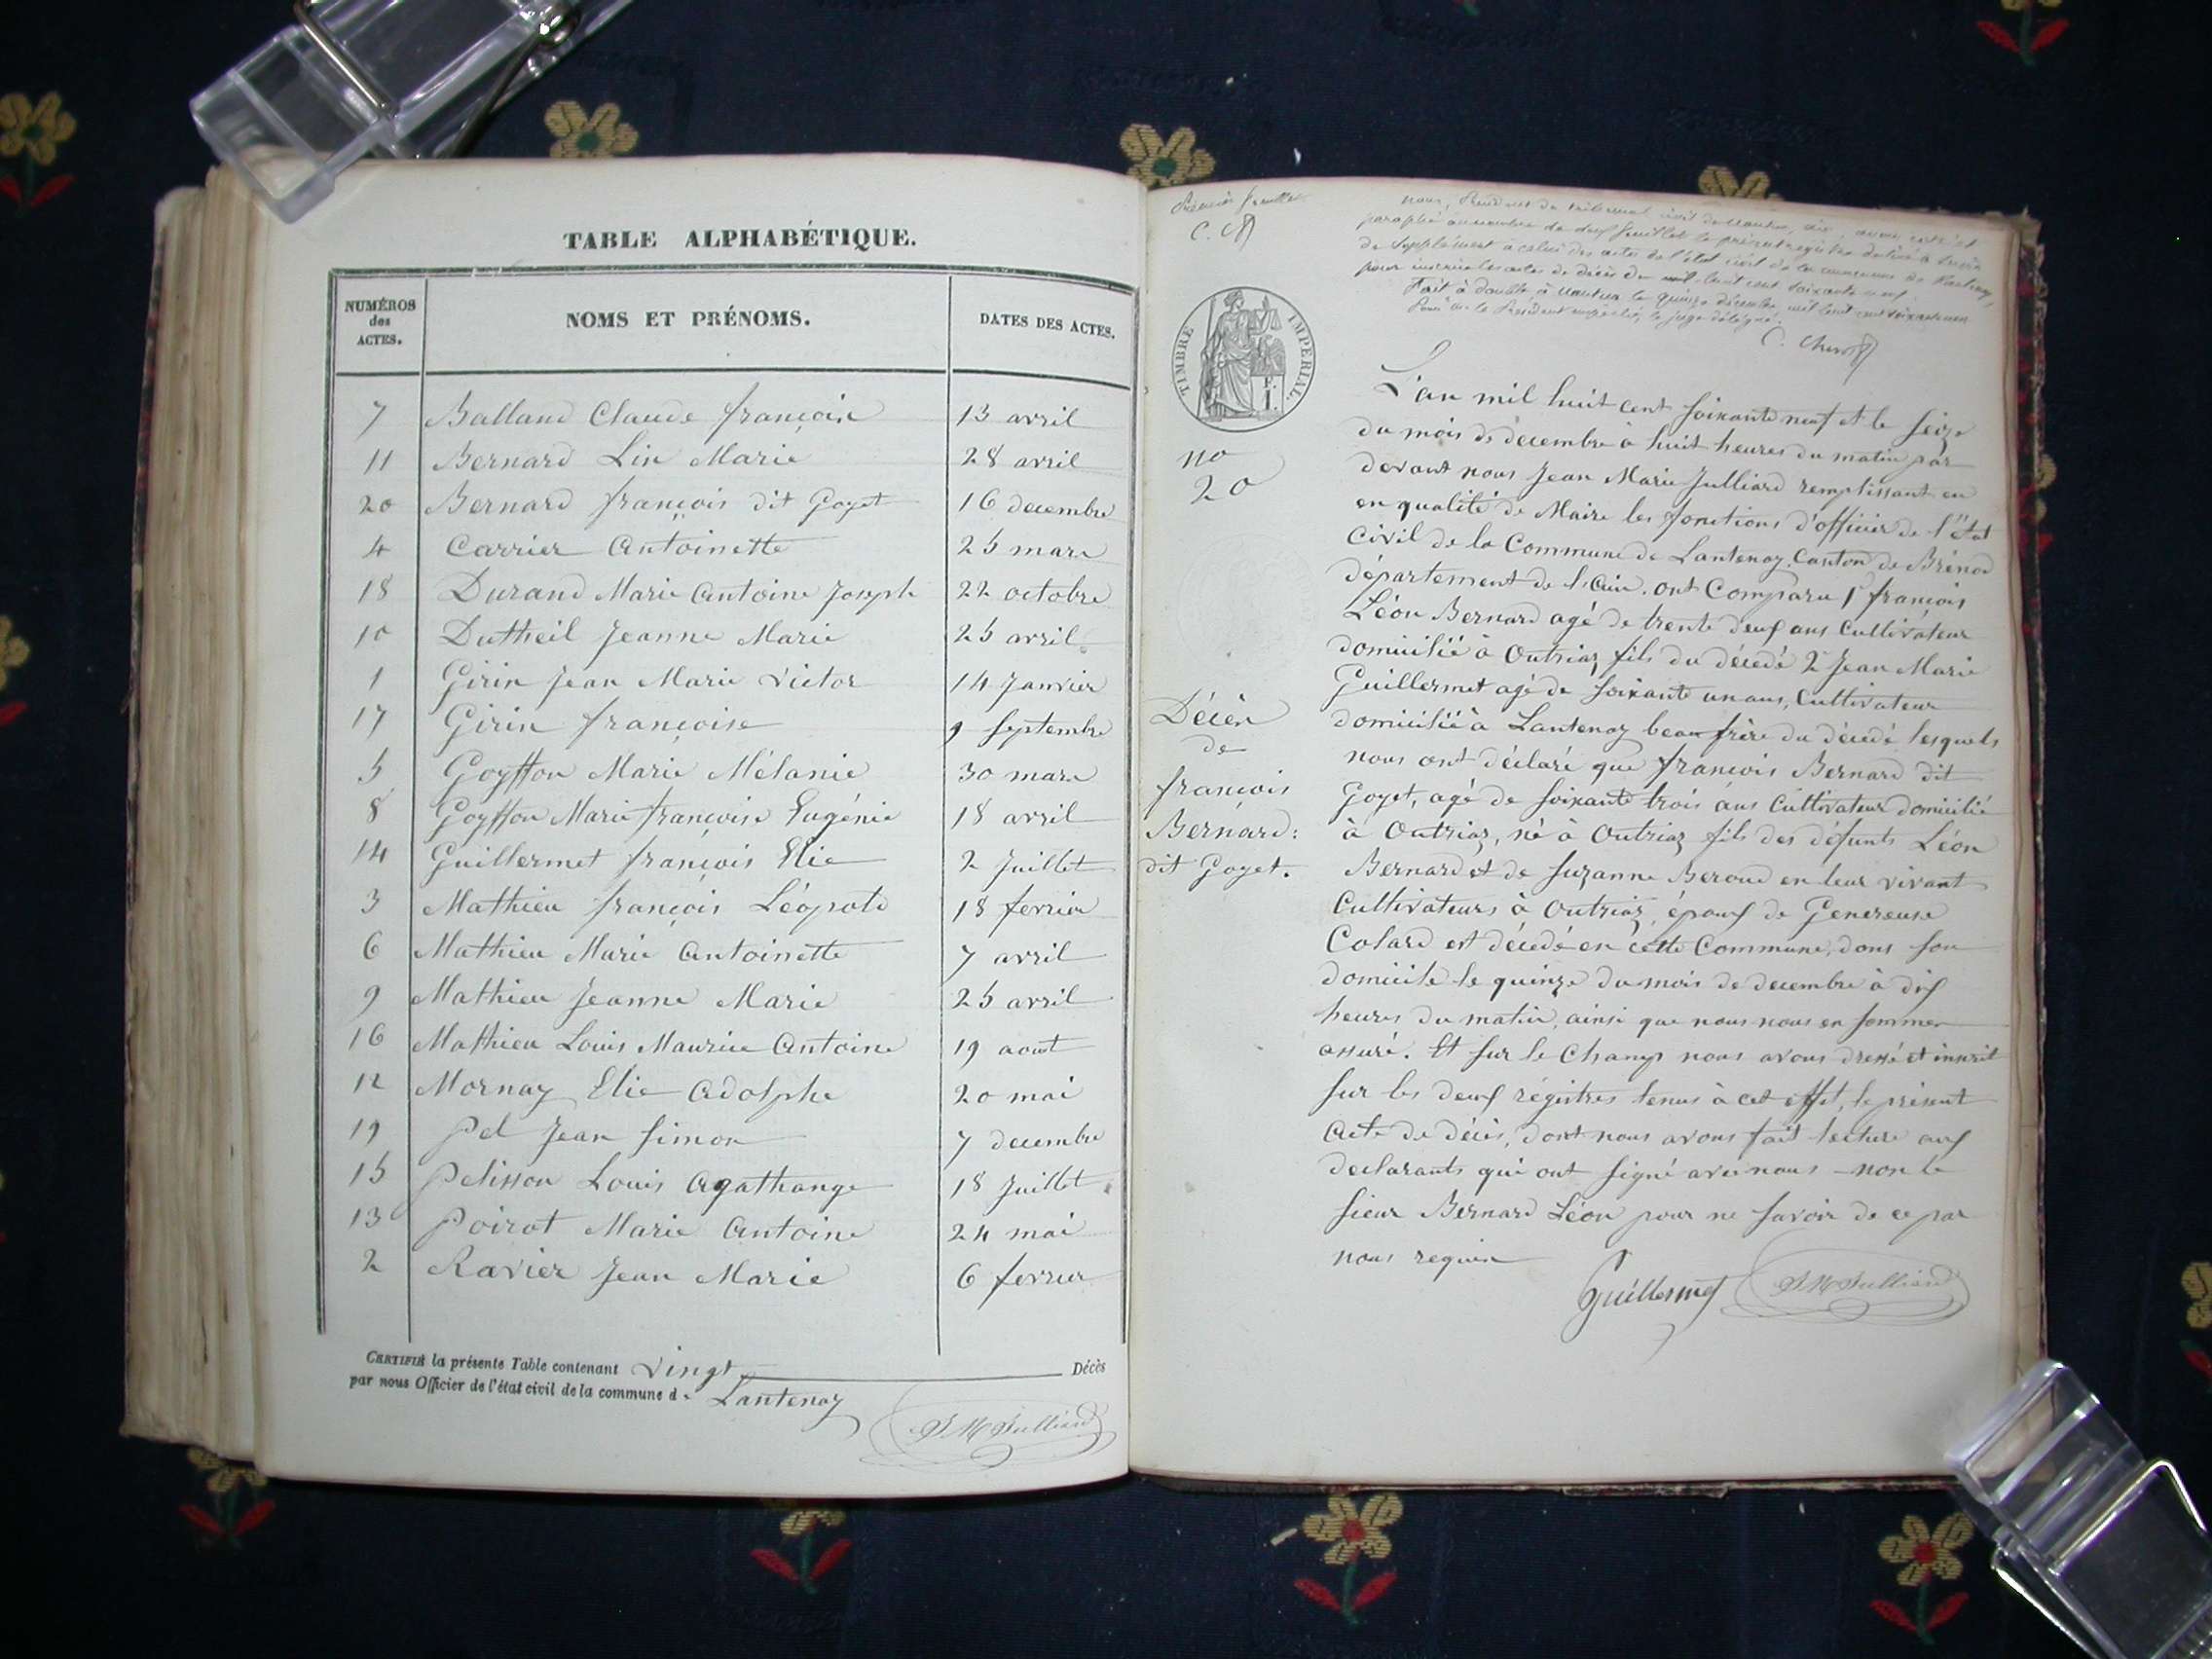 TABLE ALPHABÉTIQUE.
NUMÉROS des ACTES. NOMS ET PRÉNOMS. DATES DES ACTES.
7 Balland Claude françois 13 avril
11 Bernard Lin Marie 28 avril
20 Bernard françois dit Goyet 16 decembre
4 Carrier Antoinette 25 mars
18 Durand Marie Antoine Joseph 22 octobre
10 Dutheil Jeanne Marie 25 avril
1 Girin Jean Marie Victor 14 Janvier
17 Girin françoise 9 Septembre
5 Goyffon Marie Mélanie 30 mars
8 Goyffon Marie françoise Eugénie 18 avril
14 Guillermet françois Elie 2 Juillet
3 Mathieu françois Léopold 18 fevrier
6 Mathieu Marie Antoinette 7 avril
9 Mathieu Jeanne Marie 25 avril
16 Mathieu Louis Maurice Antoine 19 aout
12 Mornay Elie Adolphe 20 mai
19 Pel Jean Simon 7 decembre
15 Pelisson Louis Agathange 18 Juillet
13 Poirot Marie Antoine 24 mai
2 Ravier Jean Marie 6 fevrier
CERTIFIÉ la présente Table contenant Vingt Décès
par nous Officier de l'état civil de la commune de Lantenay
J M Julliard
Premier feuillet
nous, Président du tribunal civil de Nantua,
paraphé au nombre de deux feuillets le présent registre destiné à servir
de Supplément à celui des actes de l'état civil de la commune de Lantenay,
pour inscrire les actes de décès de mil huit cent soixante neuf.
Fait à double à Nantua le quinze décembre mil huit cent soixante neuf
Pour M. le Président empêché, le juge délégué
TIMBRE IMPÉRIAL.
L'an mil huit cent soixante neuf et le seize
du mois de decembre à huit heures du matin par
devant nous Jean Marie Julliard remplissant en
en qualité de Maire les fonctions d'officier de l'Etat
Civil de la Commune de Lantenay, Canton de Brénod
département de l'Ain. ont Comparu 1° françois
Léon Bernard agé de trente deux ans Cultivateur
domicilié à Outriaz fils du décédé 2° Jean Marie
Guillermet agé de soixante un ans, Cultivateur
domicilié à Lantenay beau frère du décédé lesquels
nous ont déclaré que françois Bernard dit
Goyet, agé de soixante trois ans Cultivateur domicilié
à Outriaz, né à Outriaz fils des défunts Léon
Bernard et de Suzanne Beroud en leur vivant
Cultivateurs à Outriaz, époux de Genereuse
Colard est décédé en cette Commune, dans son
domicile le quinze du mois de decembre à dix
heures du matin, ainsi que nous nous en sommes
assuré. Et sur le Champ nous avons dressé et inscrit
sur les deux régistres tenus à cet effet, le présent
Acte de décès, dont nous avons fait lecture aux
declarants qui ont signé avec nous non le
sieur Bernard Léon pour ne savoir de ce par
nous requis
Guillermet J M Julliard
no
20
Décès
de
françois
Bernard:
dit Goyet.